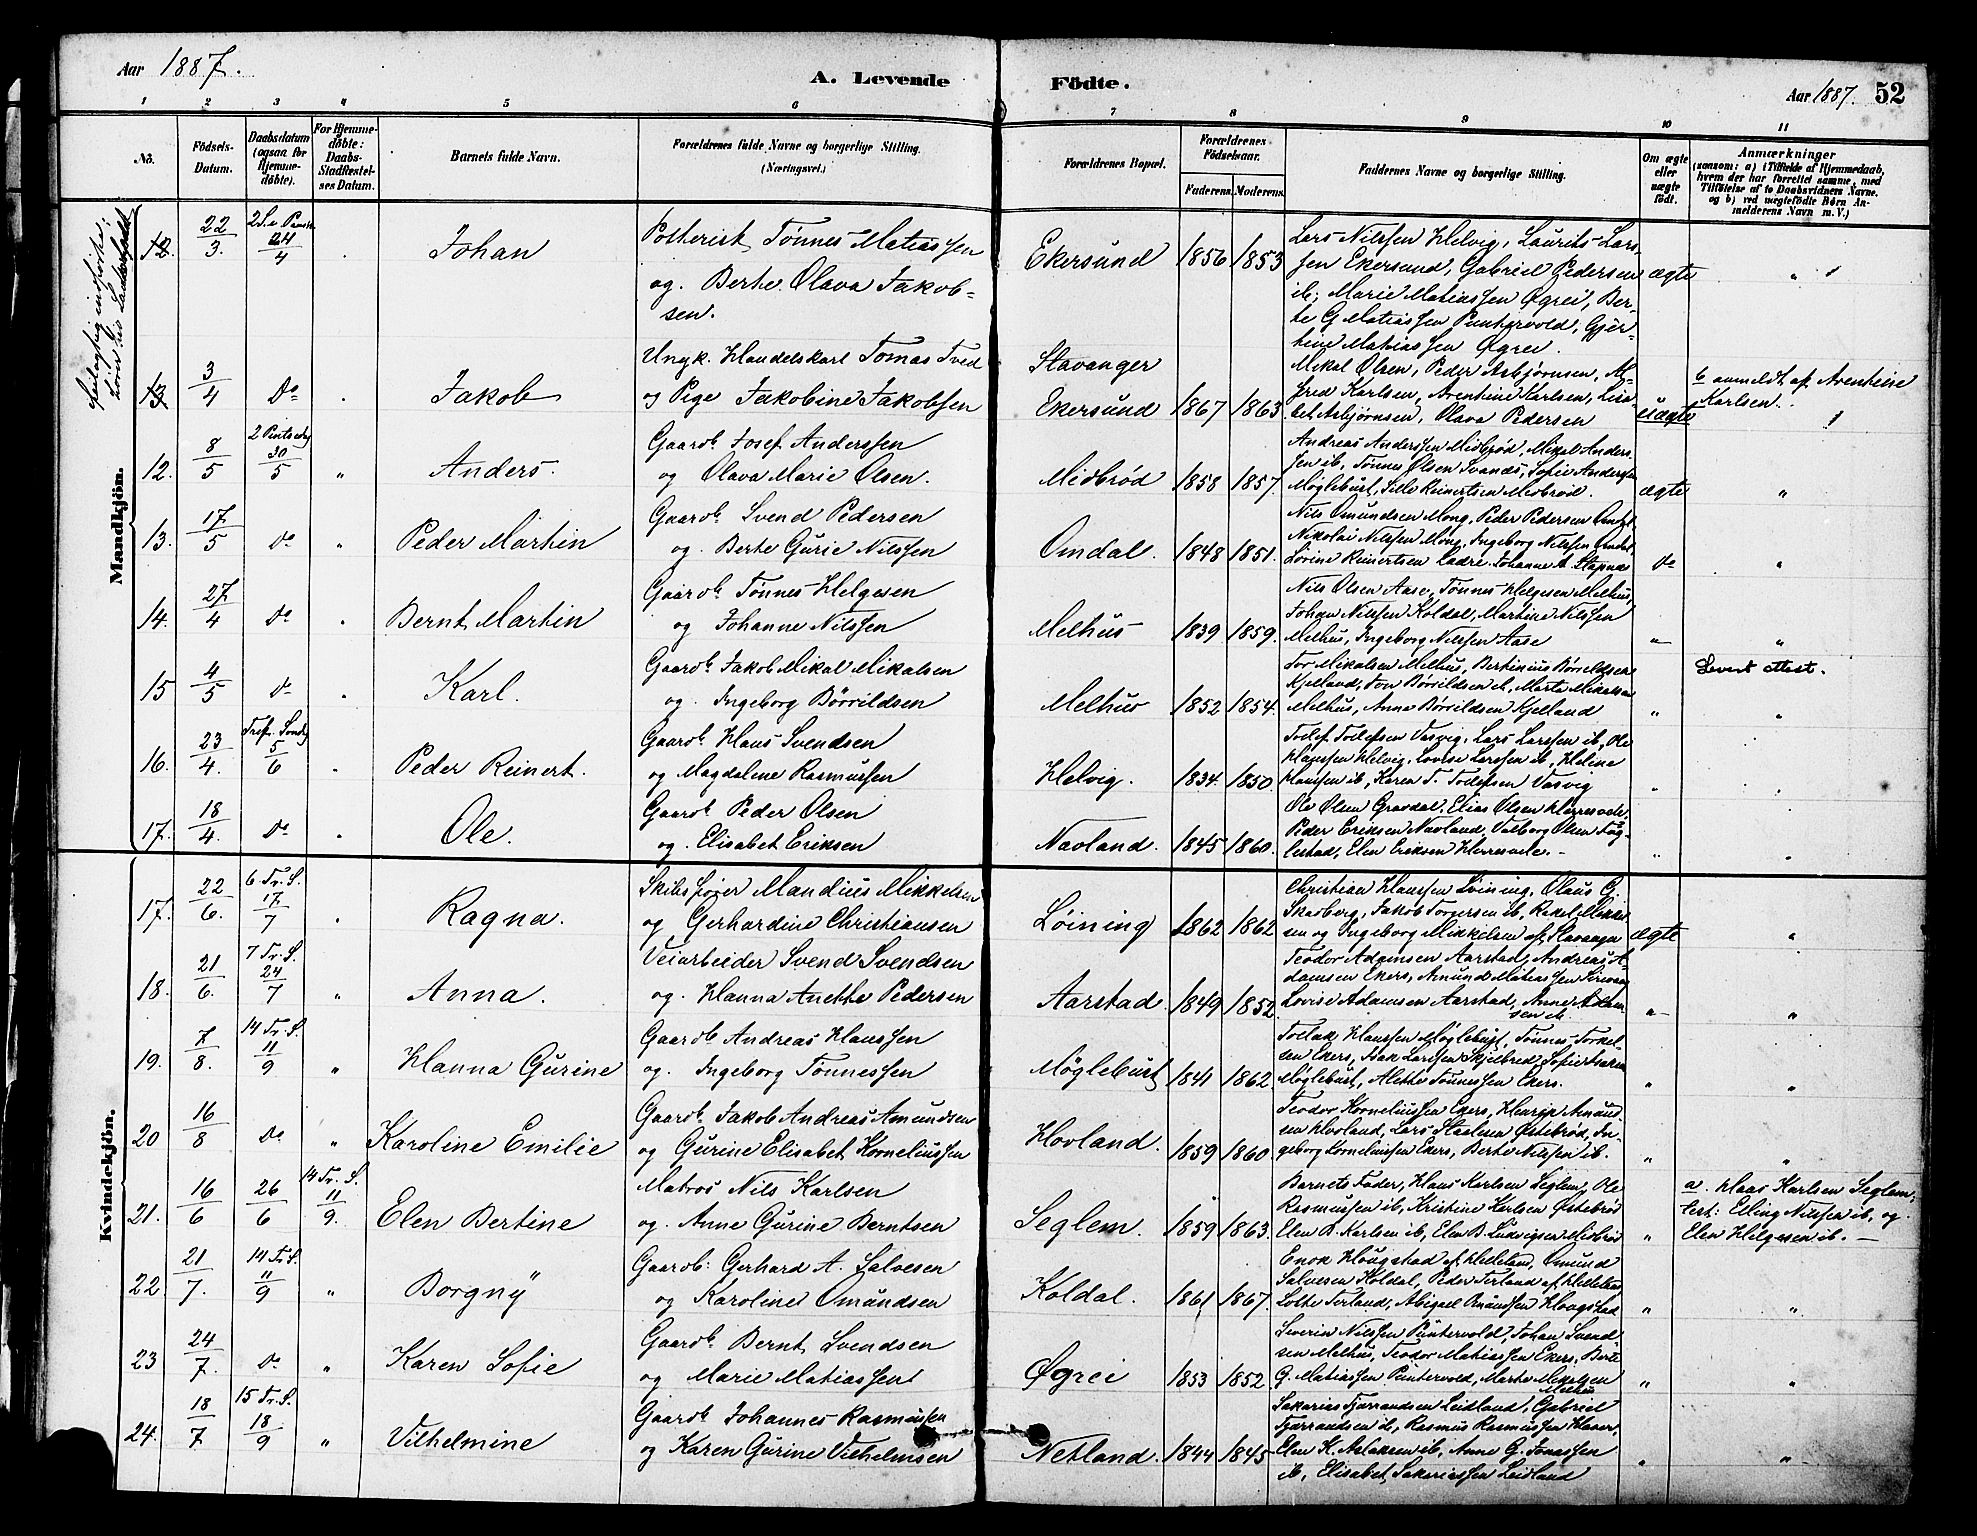 Aar 1887.
A. Levende Födte.
Aar 1887. 52
1 2 3 4 5 6 7 8 9 10 11
No.
Födsels-Datum.
Daabsdatum (ogsaa for Hjemme-döbte).
For Hjemme-döbte: Daabs-Stadfæstel-ses Datum.
Barnets fulde Navn.
Forældrenes fulde Navne og borgerlige Stilling. (Næringsvei.)
Forældrenes Bopæl.
Forældrenes Födselsaar.
Faderens. Moderens.
Faddernes Navne og borgerlige Stilling.
Om ægte eller uægte födt.
Anmærkninger
(saasom: a) i Tilfælde af Hjemmedaab,
hvem der har forrettet samme, med
Tilföielse af to Daabsvidners Navne.
og b) ved uægtefödte Börn An-
melderens Navn m. V.)
Mandkjön.
12. 22/3. 24/4 Johan
Tønnes Matiassen
og. Berte Olava Jakob-
sen.
Ekersund 1856 1853
Lars Nilssen Helvig, Laurits Lars-
sen Ekersund, Gabriel Pedersen
ib, Marie Matiassen Øgrei, Ber-
te G Matiassen Puntervold, Gjer-
tine Matiassen Øgrei.
ægte "
13 3/4 Do Jakob
Ungk. Handelskarl Tomas Tved
og Pige Jakobine Jakobsen
Stavanger
Ekersund 1867 1863.
Mikal Olsen, Peder Asbjørnsen, Al-
fred Karlsen, Arentine Karlsen, Lisa-
bet Asbjørnsen, Olava Pedersen
uægte
b anmeldt af Arentine
Karlsen.
12. 8/5 2 Pintsedag 30/5 " Anders.
Gaardb. Josef Anderssen
og Olava Marie Olsen.
Midbrød 1858 1857.
Andreas Anderssen Midbrød, Mikal Anders-
sen ib, Tønnes Olsen Svanæs, Sofie Anderssen
Møglebust, Sille Reinertsen Midbrød.
ægte "
13. 17/5 Do " Peder Martin
Gaardb. Svend Pedersen
og. Berte Gurie Nilssen
Omdal. 1848 1851.
Nils Omundsen Mong, Peder Pedersen Omdal
Nikolai Nilssen Mong, Ingeborg Nilssen Omdal
Lorine Reinertsen Ladre, Johanne A. Stapnes
Do "
14. 27/4 Do " Bernt Martin
Gaardb. Tønnes Helgesen
og Johanne Nilssen
Melhus 1839 1859.
Nils Olsen Aase, Tønnes Helgesen Melhus,
Johan Nilssen Koldal, Martine Nilssen
Melhus, Ingeborg Nilssen Aase
" "
15 4/5 Do " Karl.
Gaardb. Jakob Mikal Mikalsen
og. Ingeborg Børrildsen
Melhus 1852 1854.
Tor Mikalsen Melhus, Bertinius Børrildsen
Kjelland, Tor Børrildsen ib, Marta Mikalsen
Melhus, Anne Børrildsen Kjelland
" Levert Attest. "
16. 23/4. Tref. Sondag 5/6 " Peder Reinert.
Gaardb. Hans Svendsen
og Magdalene Rasmussen
Helvig. 1834. 1850
Todlef Todlefsen Vasvig, Lars Larssen ib, Ole
Hanssen Helvig, Lovise Larssen ib, Helene
Hanssen ib, Karen T. Todlefsen Vasvig
17. 18/4. Do " Ole.
Gaardb. Peder Olsen
og. Elisabet Eriksen
Navland. 1845 1860.
Ole Olsen Gravdal, Elias Olsen Herresvele,
Peder Eriksen Navland, Valborg Olsen Fug-
lestad, Elen Eriksen Herresvele.
" "
Kvindekjön.
17. 22/6. 6 Tr. S. 17/7 " Ragna.
Skibsfører Mandius Mikkelsen
og Gerhardine Christiansen
Løining 1862 1862
Christian Hanssen Løining, Olaus G.
Skadberg, Jakob Torgersen ib, Rakel Mikkel-
sen og Ingeborg Mikkelsen af Stavanger
ægte "
18. 21/6. 7 Tr. S. 24/7 " Anna.
Veiarbeider Svend Svendsen
og. Hanna Anette Pedersen
Aarstad. 1849 1852
Teodor Adamsen Aarstad, Andreas A-
damsen Ekers, Amund Matiassen
Lovise Adamsen Aarstad, Anne Adam-
sen ib.
" "
19. 7/8. 14 Tr. S. 11/9 " Hanna Gurine
Gaardb. Andreas Hanssen
og. Ingeborg Tønnessen
Møglebust 1841 1862.
Tollak Hanssen Møglebust, Tønnes Torkel-
sen Ekers, Isak Larssen Skjelbred, Sofie Isaksen
Møglebust, Alette Tønnessen Ekers.
" "
20 16/8 Do " Karoline Emilie
Gaardb. Jakob Andreas Amundsen
og Gurine Elisabet Korneliussen
Hovland. 1859 1860.
Teodor Korneliussen Ekers, Henrik Amund-
sen Hovland, Lars Staalesen Østebrød, In-
geborg Korneliussen Ekers, Berte Nilssen ib.
" "
21. 16/6 26/6 14 Tr. S. 11/9. Elen Bertine
Matros Nils Karlsen
og. Anne Gurine Berntsen
Seglem. 1859 1863.
Barnets Fader, Hans Karlsen Seglem, Ole
Rasmussen ib, Kristine Karlsen Østebrød
Elen B. Karlsen ib, Elen B. Ludvigsen Midbrød
"
a. Klaas Karlsen Seglem.
test: Elling Nilssen ib, og
Elen Helgesen ib.
22 21/7. 14 Tr. S. 11/9 " Borgny
Gaardb: Gerhard A. Salvesen
og Karoline Omundsen
Koldal. 1861 1867.
Enok Hougstad af Helleland, Omund
Salvesen Koldal, Peder Terland af Helleland
Lotte Terland, Abigael Omundsen Hougstad
" "
23 24/7. Do " Karen Sofie
Gaardb. Bernt Svendsen
og Marie Matiassen
Øgrei 1853 1852.
Severin Nilssen Puntervold, Johan Svend-
sen Melhus, Teodor Matiassen Ekers, Berte
G. Matiassen Puntervold, Marte Mikalsen
Melhus
" "
24. 18/7. 15 Tr. S. 18/9 " Vilhelmine
Gaardb. Johannes Rasmussen
og Karen Gurine Vilhelmsen
Netland. 1844 1845
Sakarias Tjørrandsen Leidland, Gabriel
Tjørrandsen ib, Rasmus Rasmussen
Elen K. Aslaksen ib, Anne G. Jonassen
ib, Elisabet Sakariassen Leidland
" "